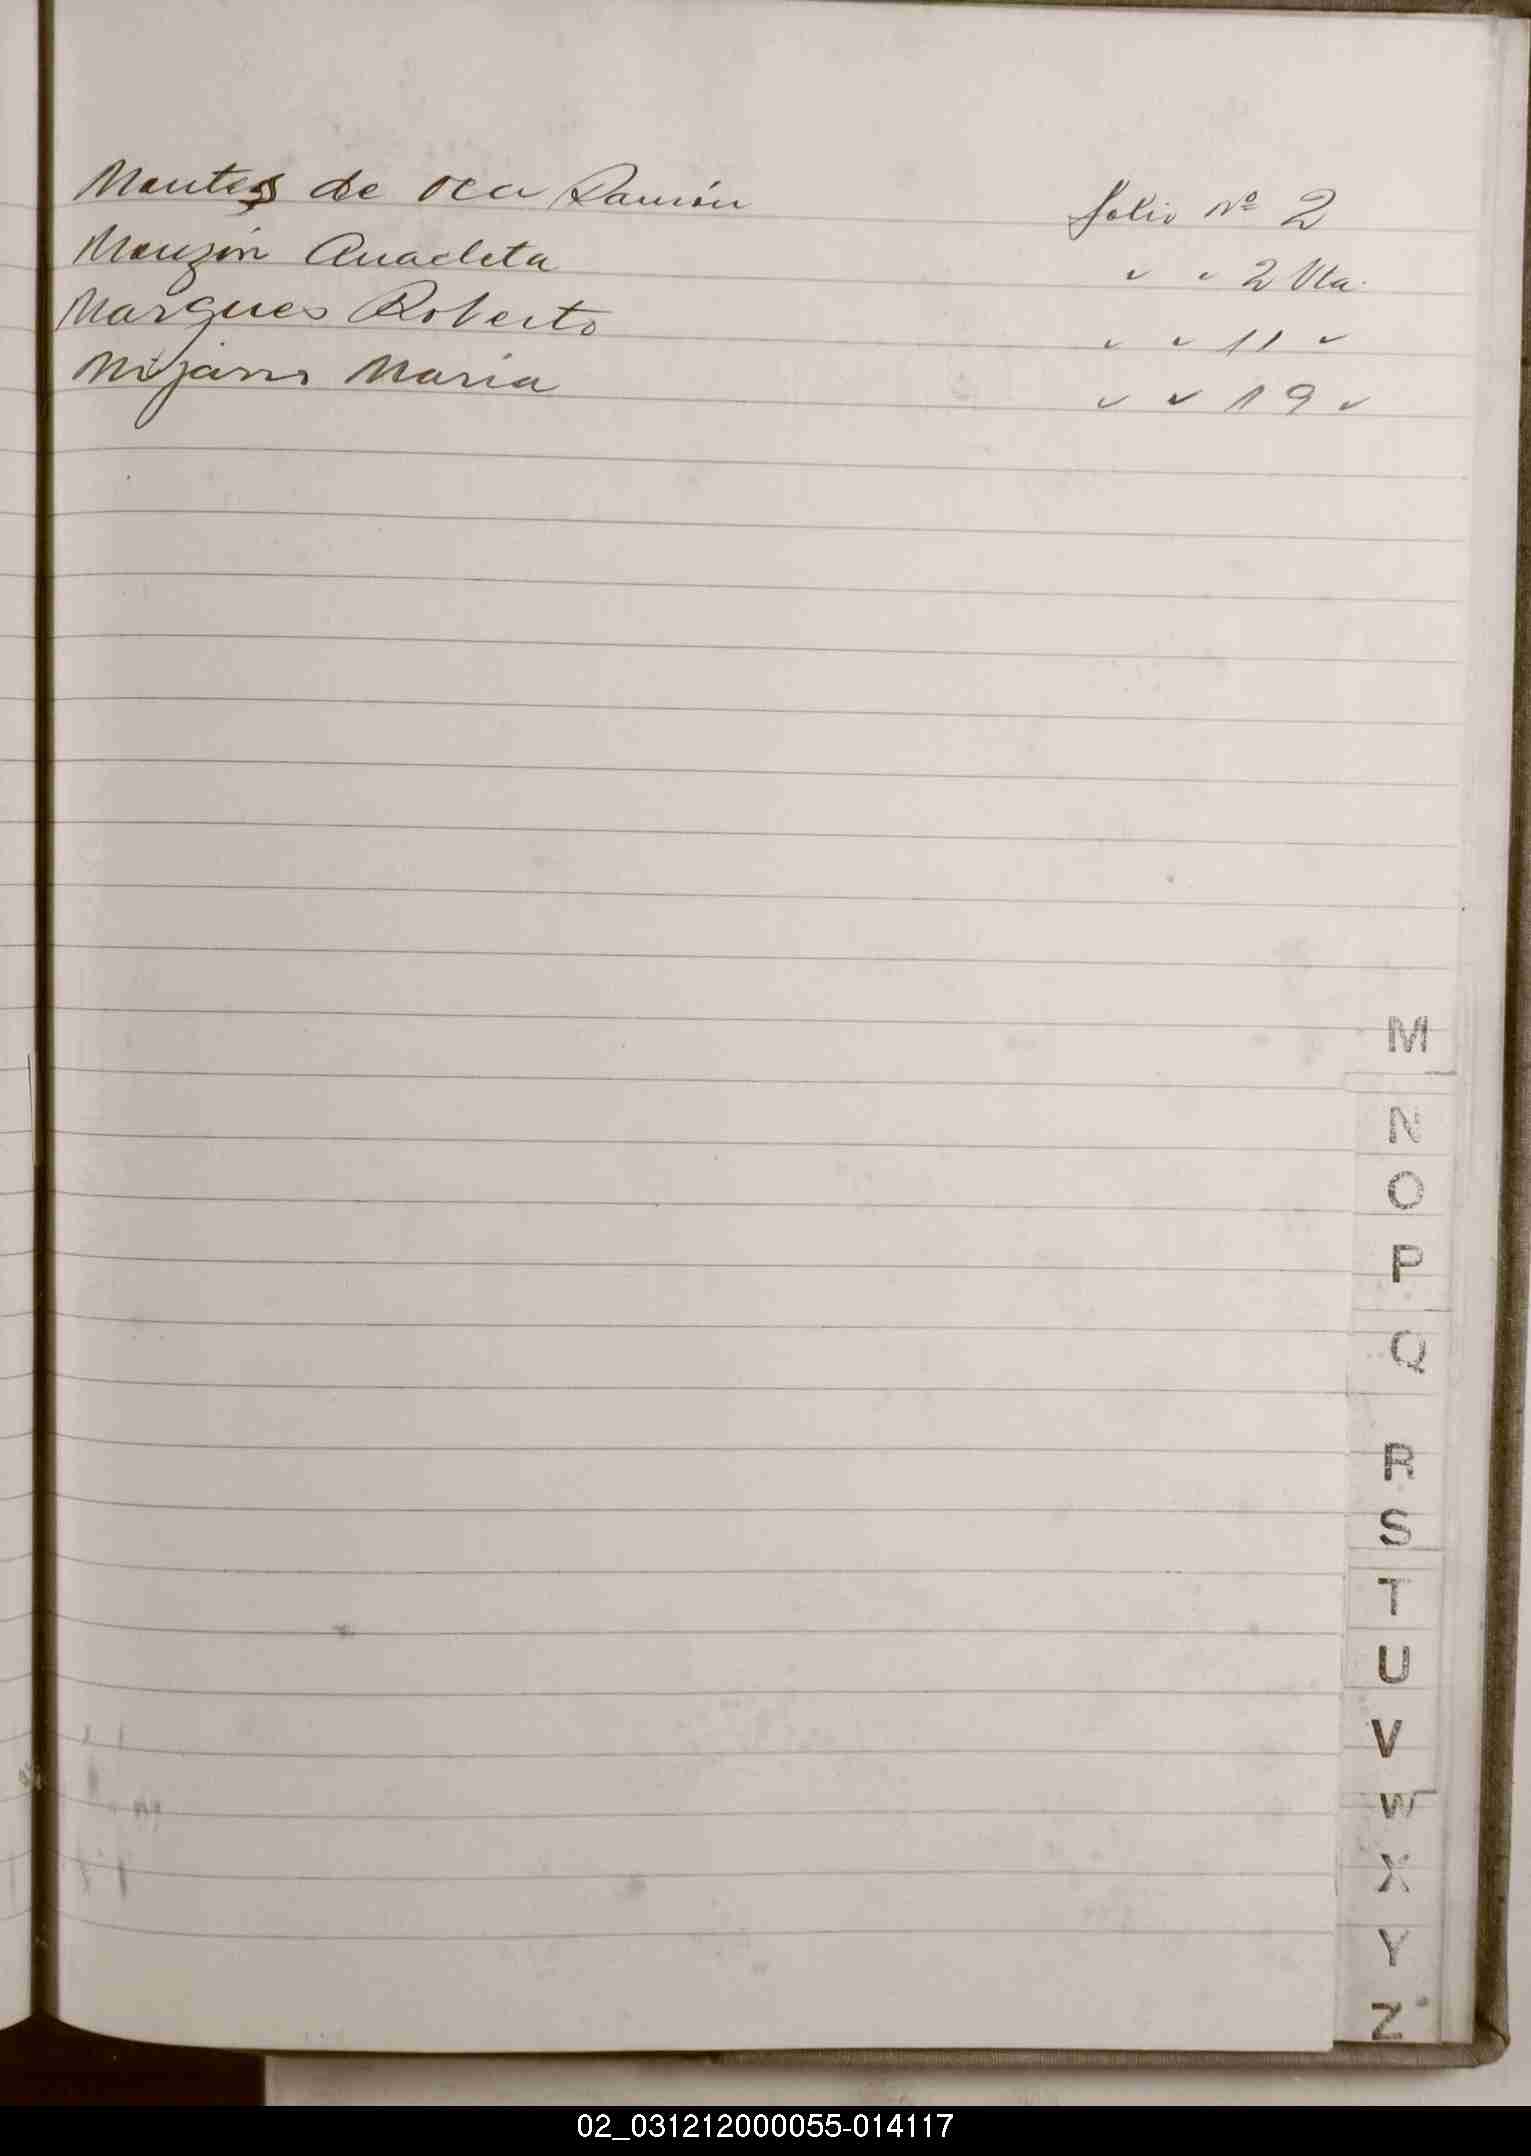 Montes de Oca Ramón folio Nº 2
Monzón Anacleta " " 2 Vta.
Marques Roberto " " 11 "
Mijares Maria " " 19 "
M
N
O
P
Q
R
S
T
U
V
W
X
Y
Z
02_031212000055-014117